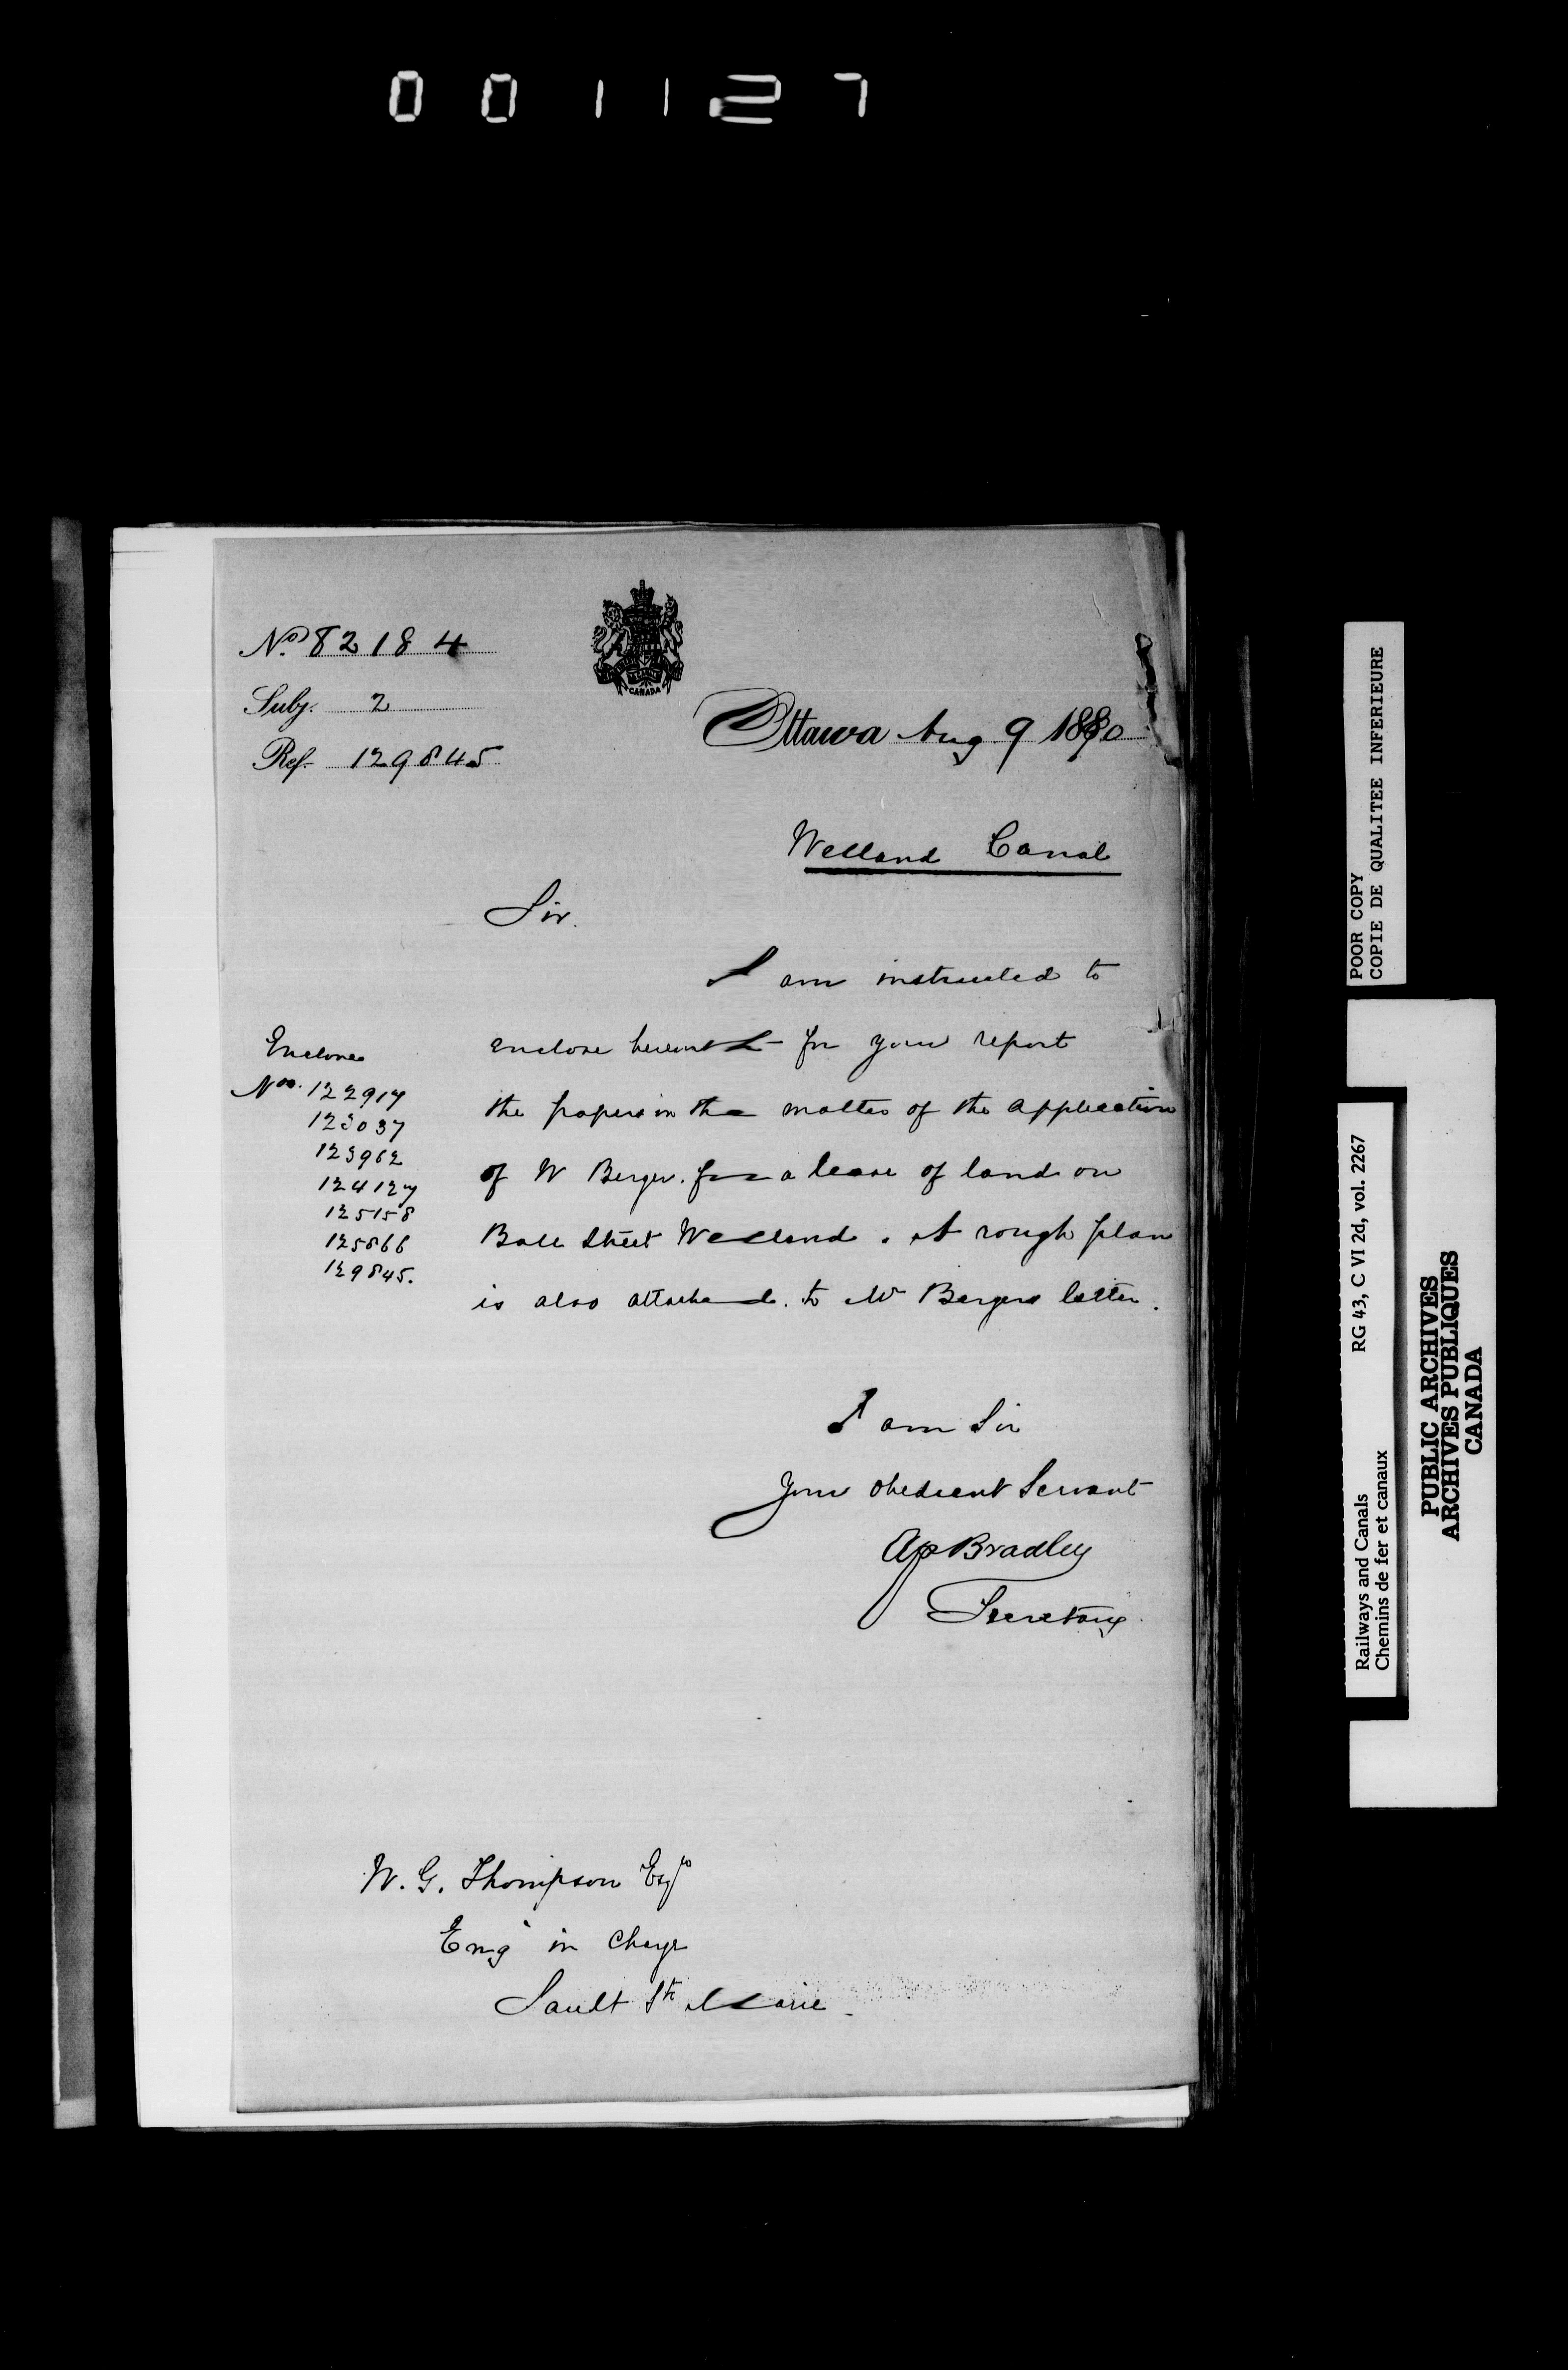 001127
No. 82184
Subj. 2
Ref. 129845
CANADA
Ottawa Aug 9 1890
Welland Canal
Sir.
I am instructed to
enclose herewith for your report
the papers in the matter of the application
of W Berger. for a lease of land on
Ball Street Welland. A rough plan
is also attached. to Mr Bergers letter.
Enclones
Nos. 122917
123037
123962
124127
125158
125866
129845.
I am Sir
Your obedient Servant
AP Bradley
Secretary.
W. G. Thompson Esqr
Engr in Charge
Sault Ste Marie
POOR COPY
COPIE DE QUALITEE INFERIEURE
Railways and Canals RG 43, C VI 2d, vol. 2267
Chemins de fer et canaux
PUBLIC ARCHIVES
ARCHIVES PUBLIQUES
CANADA